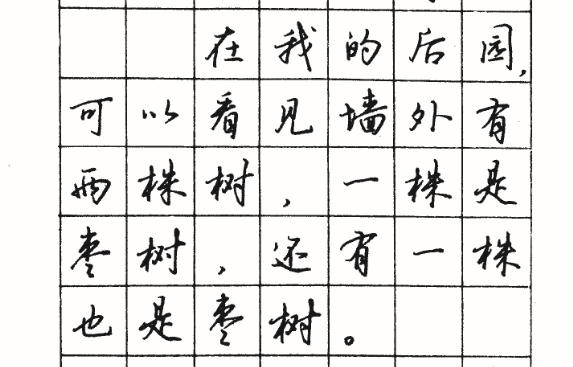 在我的后园,
可以看见墙外有
两株树,一株是
枣树,还有一株
也是枣树。